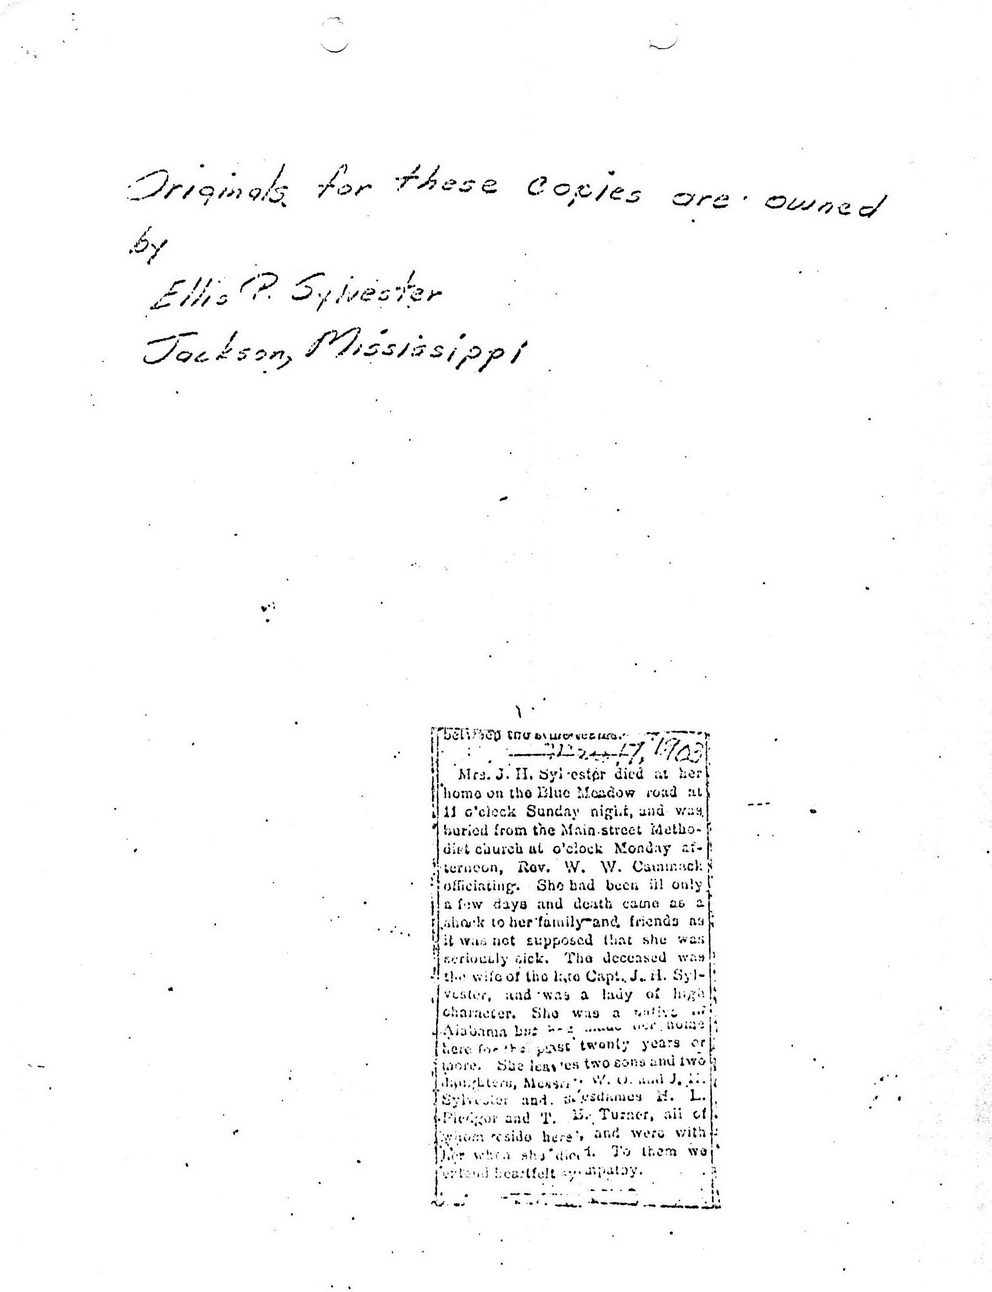 Originals for these copies are owned
by
Ellis P. Sylvester
Jackson, Mississippi
the
17, 1903
Mrs. J. H. Sylvester died at her
home on the Blue Meadow road at
11 o'clock Sunday night, and was
buried from the Main-street Metho-
dist church at o'clock Monday af-
ternoon, Rev. W. W. Cammack
officiating. She had been ill only
a few days and death came as a
shock to her family and friends as
it was not supposed that she was
seriously sick. The deceased was
the wife of the late Capt. J. H. Syl-
vester, and was a lady of high
character. She was a native of
Alabama but had made her home
here for the past twenty years or
more. She leaves two sons and two
daughters, Messrs W. O. and J. H.
Sylvester and Mesdames H. L.
and T. E. Turner, all of
whom reside here, and were with
her when she died. To them we
extend heartfelt sympathy.